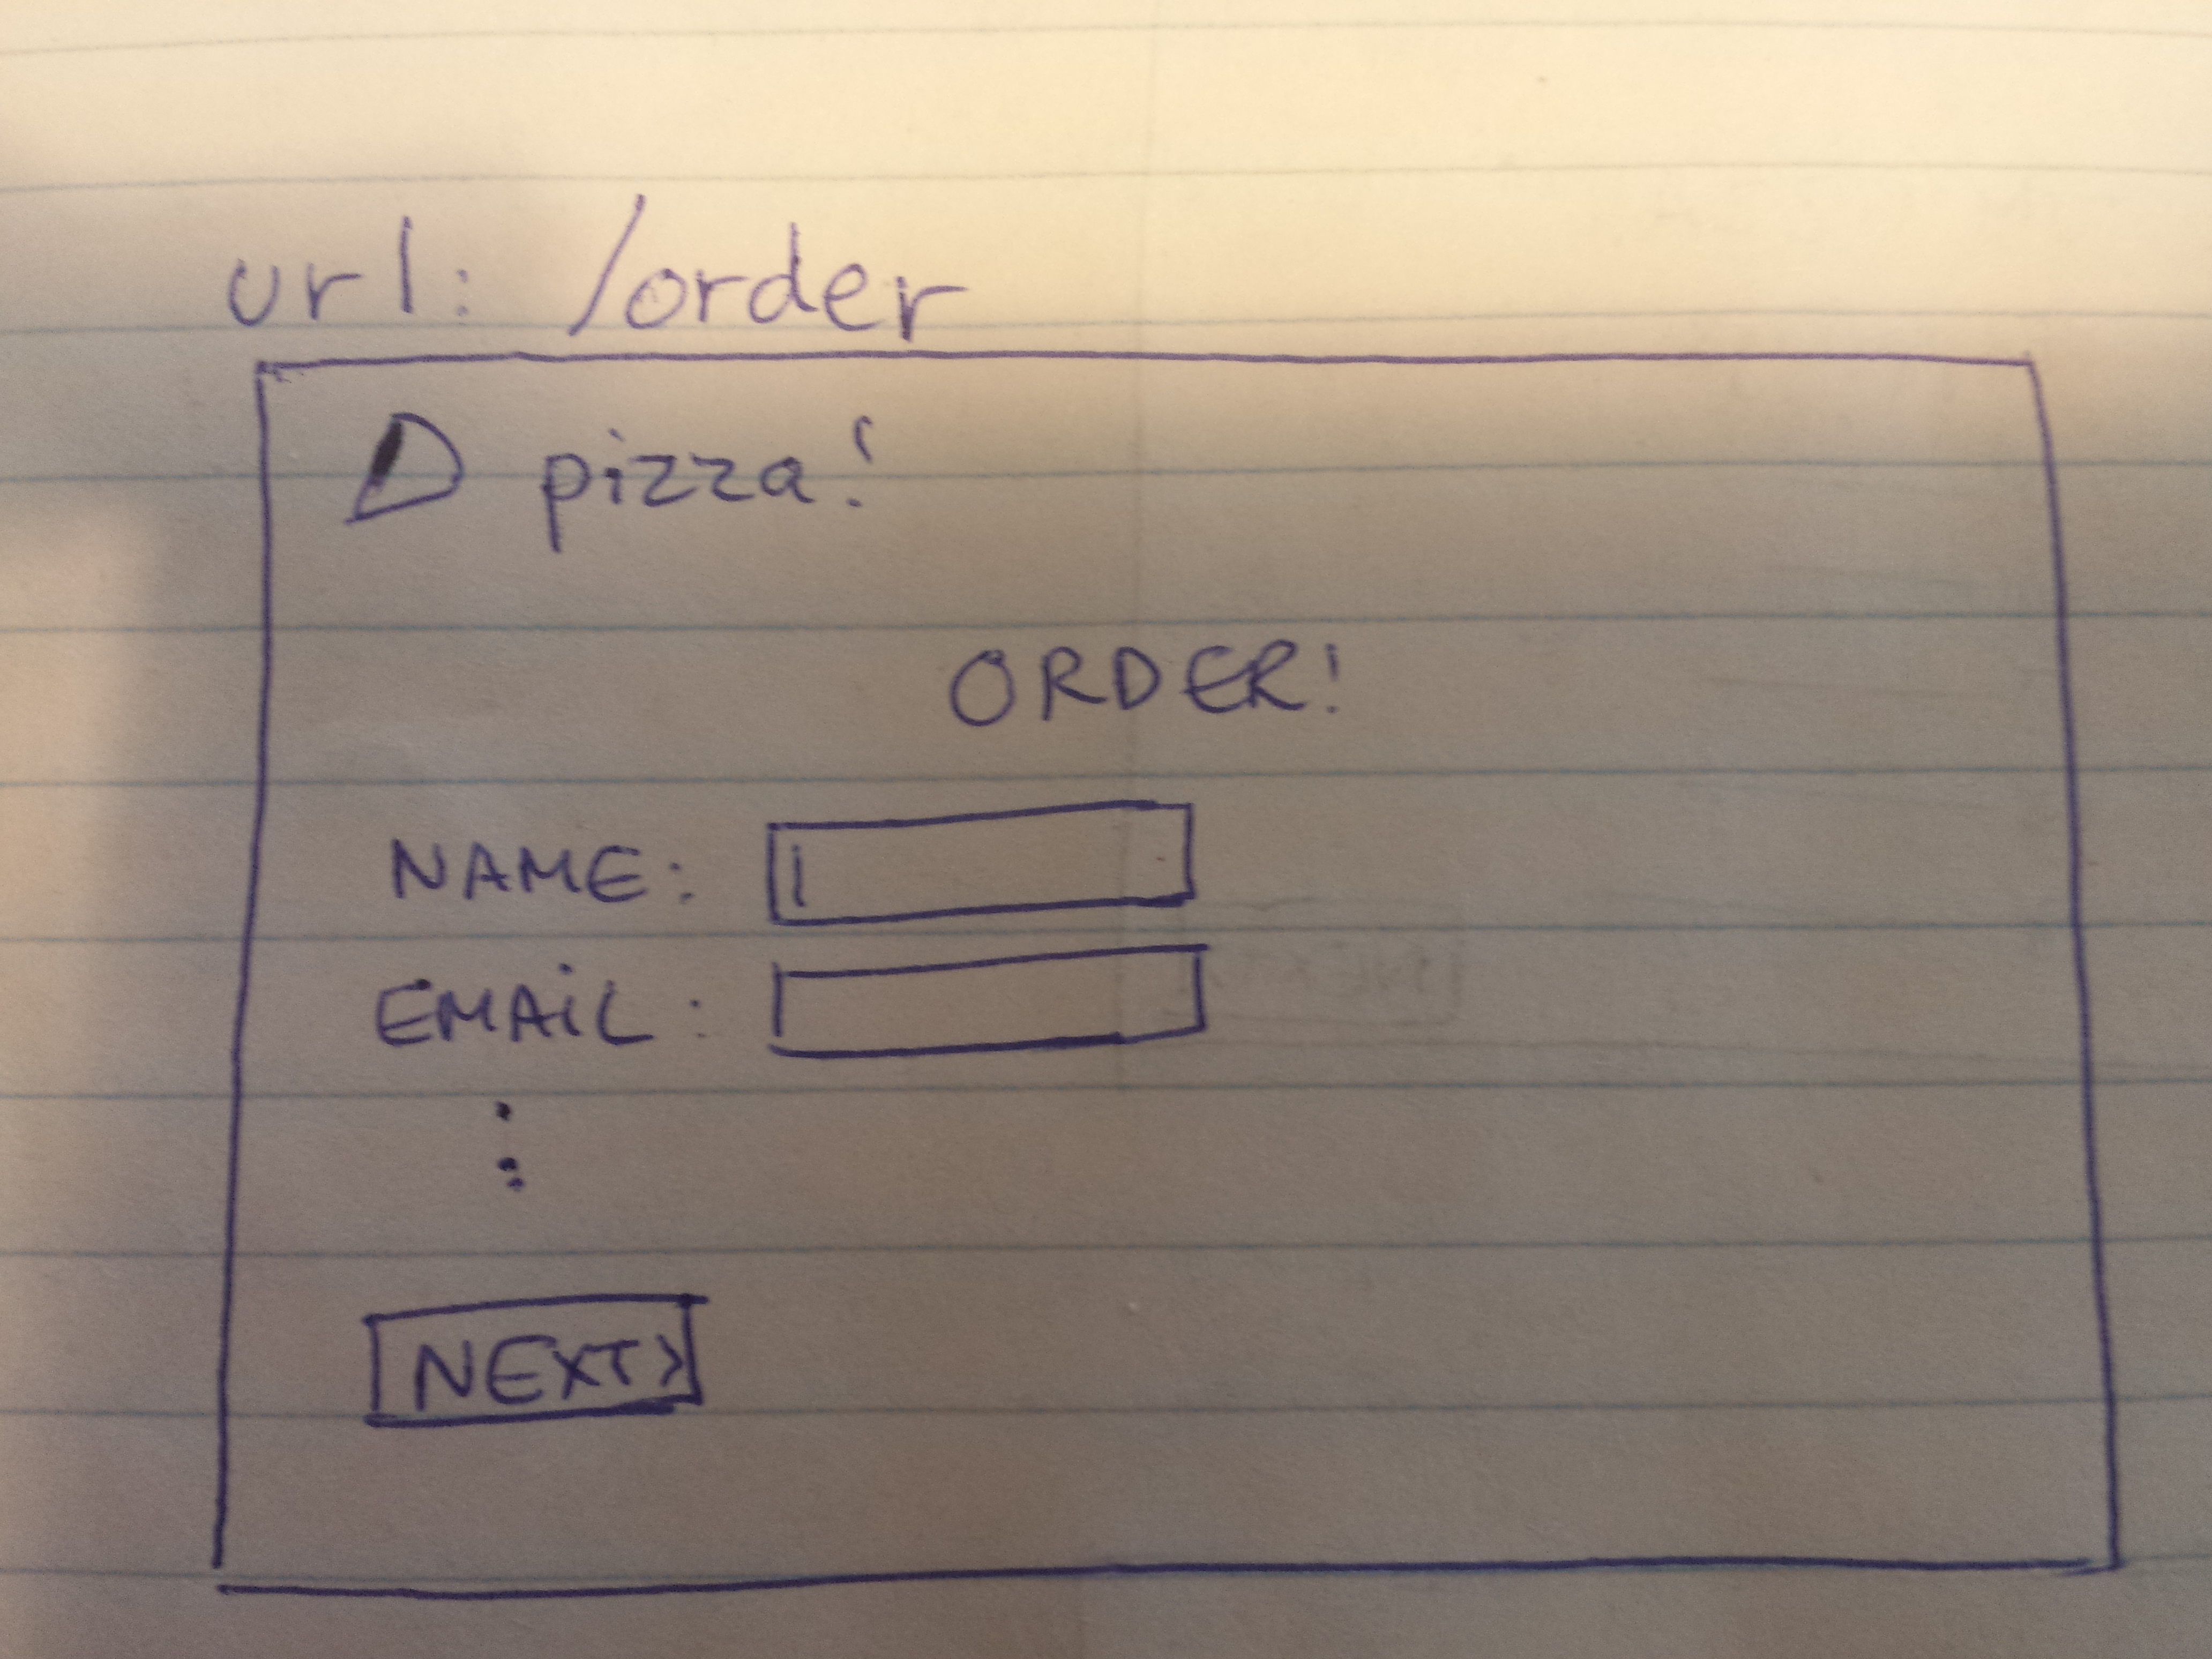 url: /order
pizza!
ORDER!
NAME:
EMAIL:
NEXT>